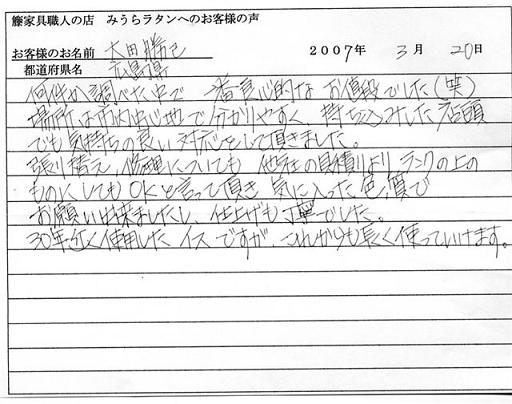 籐家具職人の店　みうらラタンへのお客様の声
お客様のお名前　太田勝己　2007年　3月　20日
都道府県名　広島県
何件か調べた中で　一番良心的なお値段でした（笑）
場所は市内中心地で分かりやすく、持ち込みした店頭
でも気持ちの良い対応をして頂きました。
張り替え、修理についても　他社の見積りより　ランクの上の
ものにしてもOKと言って頂き　気に入った色、質で
お願い出来ましたし、仕上げも丁寧でした。
30年近く使用したイスですが、これからも長く使っていけます。